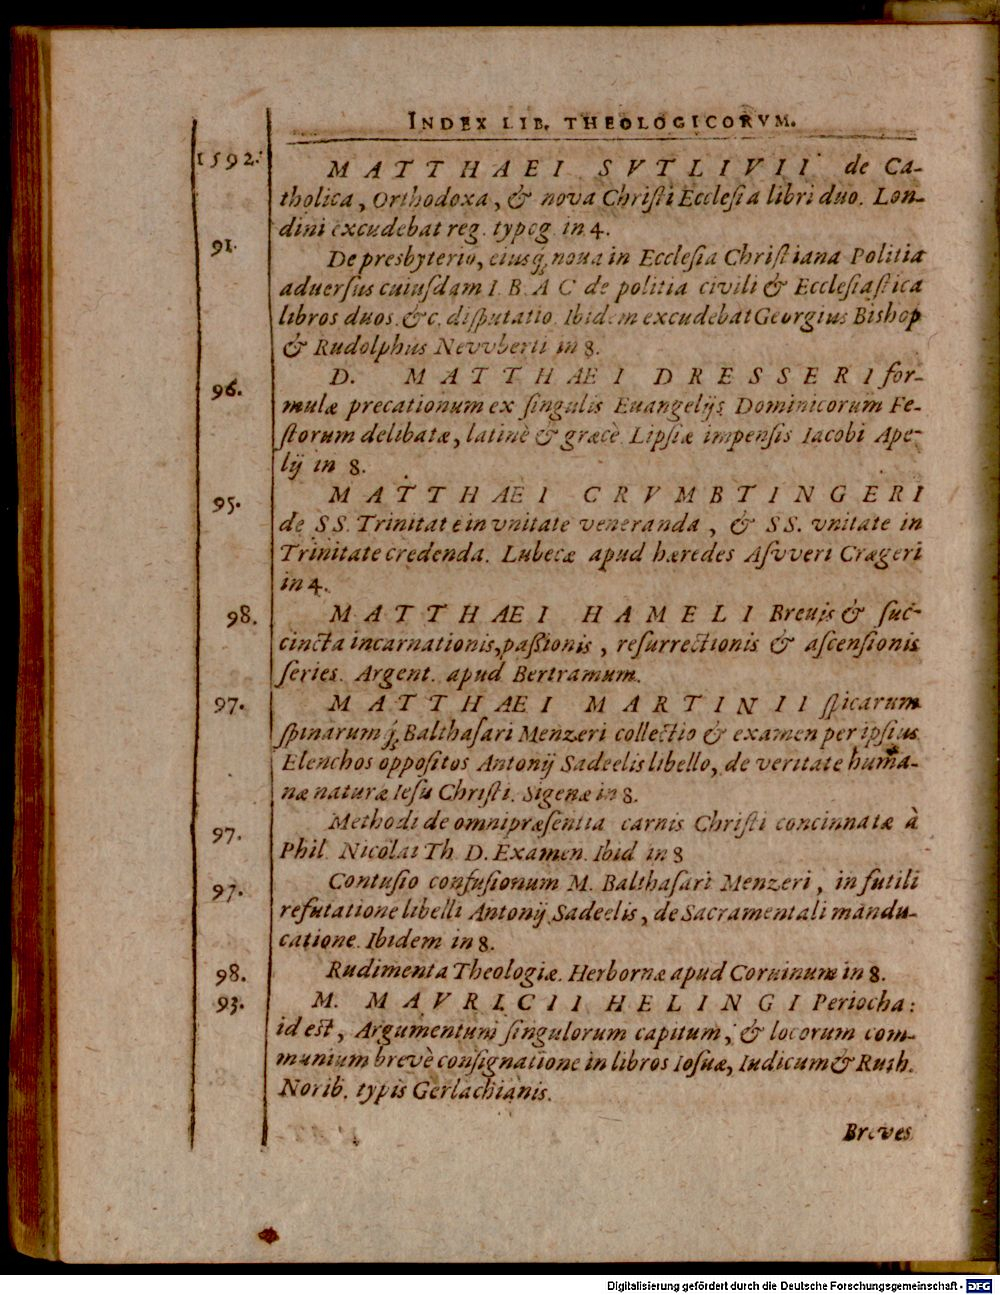 INDEX LIB. THEOLOGICORVM.
1592. MATTHAEI SVTLIVII de Ca-
tholica, Orthodoxa, & nova Chriſti Eccleſia libri duo. Lon-
dini excudebat reg. typog. in 4.
91. De presbyterio, eiusq́; noua in Eccleſia Chriſtiana Politia
aduerſus cuiuſdam I. B. A C de politia civili & Eccleſiaſtica
libros duos. &c. diſputatio. Ibidem excudebat Georgius Bishop
& Rudolphus Nevvberii in 8.
96. D. MATTHÆI DRESSERI for-
mulæ precationum ex ſingulis Euangelijs Dominicorum Fe-
ſtorum delibatæ, latinè & græcè. Lipſiæ impenſis Iacobi Ape-
lij in 8.
95. MATTHÆI CRVMBTINGERI
de SS. Trinitate in vnitate veneranda, & SS. vnitate in
Trinitate credenda. Lubecæ apud hæredes Aſvveri Crægeri
in 4.
98. MATTHÆI HAMELI Breuis & ſuc-
cincta incarnationis, paſſionis, reſurrectionis & aſcenſionis
ſeries. Argent. apud Bertramum.
97. MATTHÆI MARTINII ſpicarum
ſpinarumq́; Balthaſari Menzeri collectio & examen per ipſius
Elenchos oppoſitos Antonij Sadeelis libello, de veritate huma-
næ naturæ Ieſu Chriſti. Sigenæ in 8.
97. Methodi de omnipræſentia carnis Chriſti concinnatæ à
Phil. Nicolai Th. D. Examen. Ibid in 8
97. Contuſio confuſionum M. Balthaſari Menzeri, in futili
refutatione libelli Antonij Sadeelis, de Sacramentali mandu-
catione. Ibidem in 8.
98. Rudimenta Theologiæ. Herbornæ apud Coruinum in 8.
93. M. MAVRICII HELINGI Periocha:
id est, Argumentum ſingulorum capitum, & locorum com-
munium brevè conſignatione in libros Ioſuæ, Iudicum & Ruth.
Norib. typis Gerlachianis.
Breves
Digitalisierung gefördert durch die Deutsche Forschungsgemeinschaft - DFG